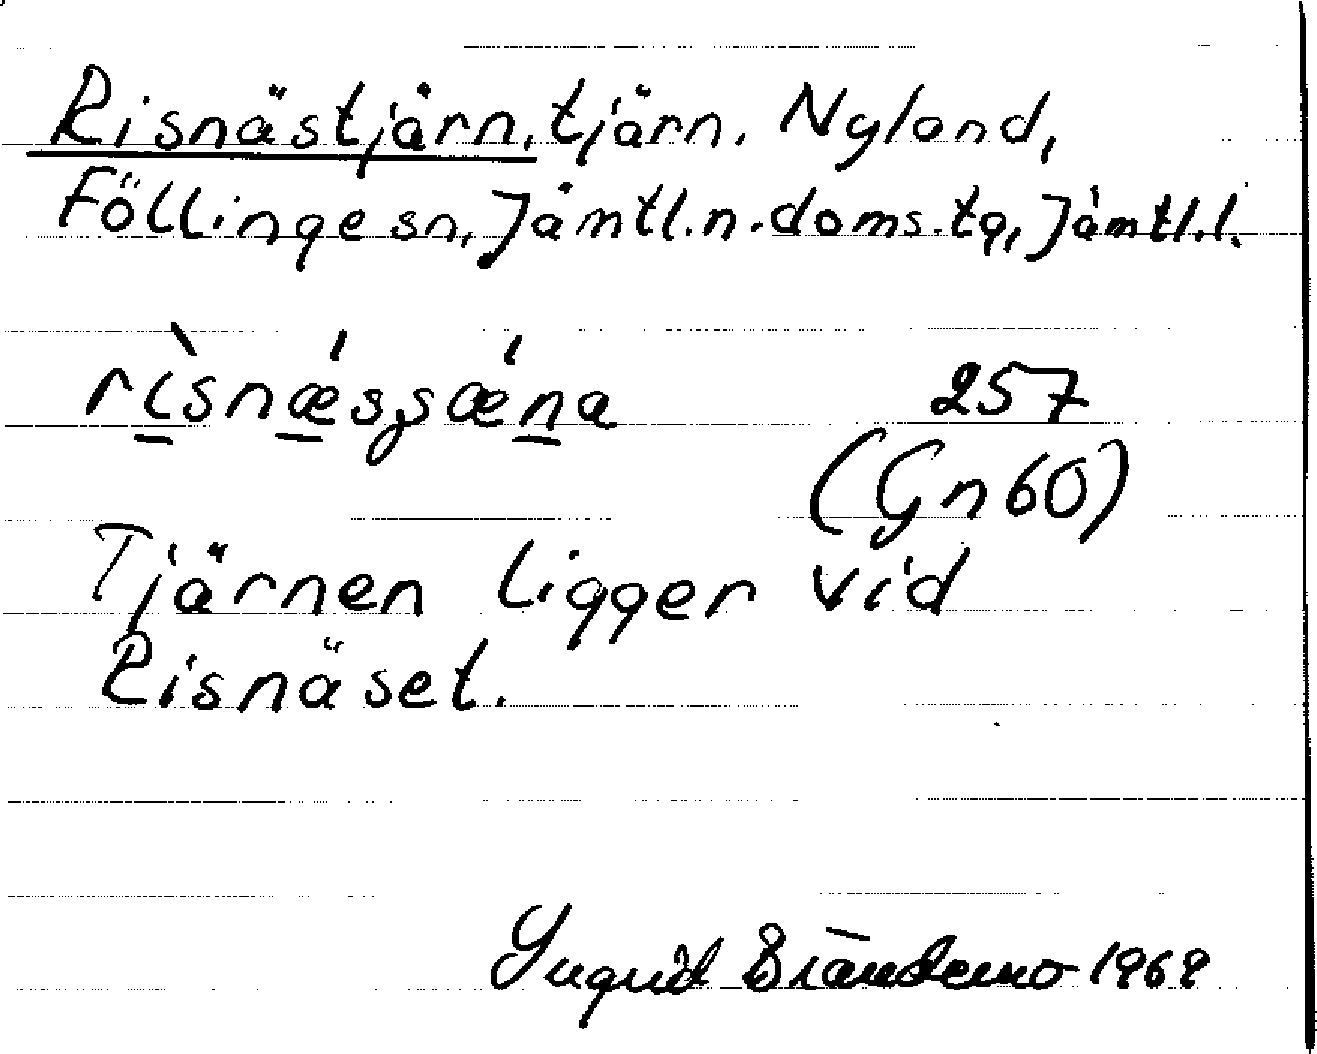 Risnästjärn, tjärn. Nyland,
Föllinge sn, Jämtl. n. doms. tg, Jämtl. l.
257
(Gn 60)
Tjärnen ligger vid
Risnäset.
Ingrid Brändemo 1968